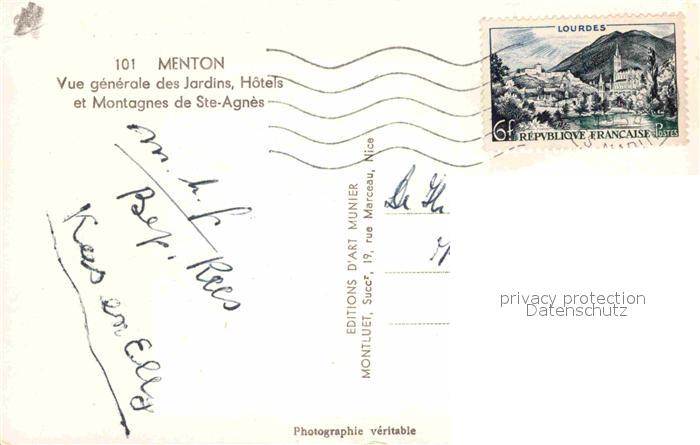 101 MENTON
Vue générale des Jardins, Hôtels
et Montagnes de Ste-Agnès
LOURDES
6f RÉPVBLIQVE FRANÇAISE POSTES
m. h. f
Bep, Kees
Kees en Elly
EDITIONS D'ART MUNIER
MONTLUET, Succr, 19, rue Marceau, Nice
privacy protection
Datenschutz
Photographie véritable